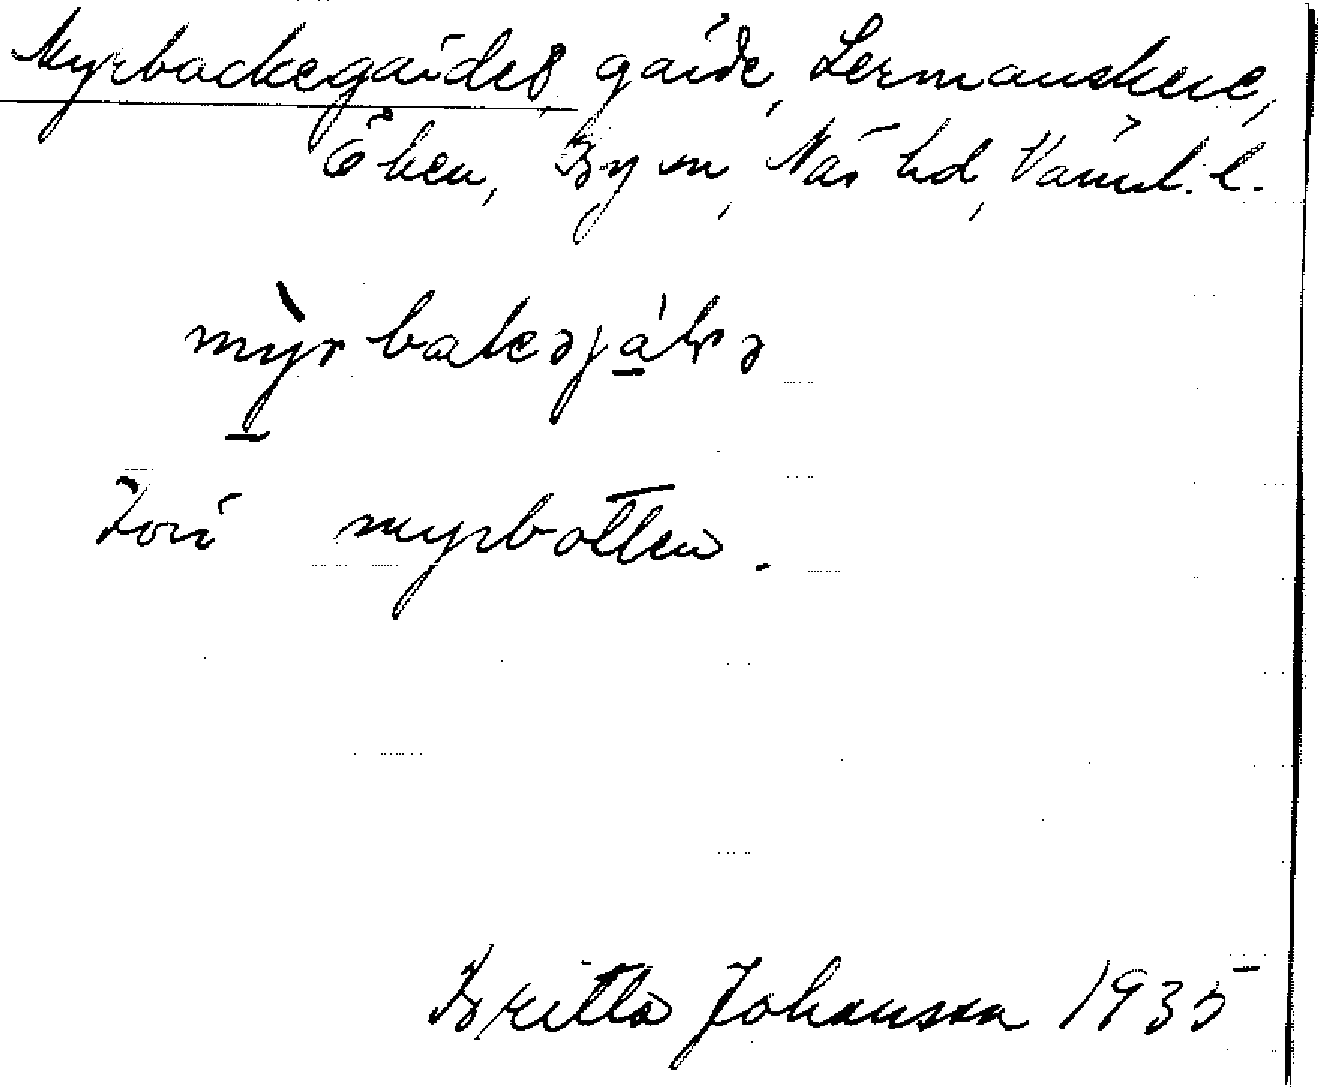 Myrbackegärdet, gärde, Lermanskere,
Öken, By sn, Näs hd, Värml. l.
mỳr bakəjálrə
Förr myrbotten.
Britta Johansson 1935